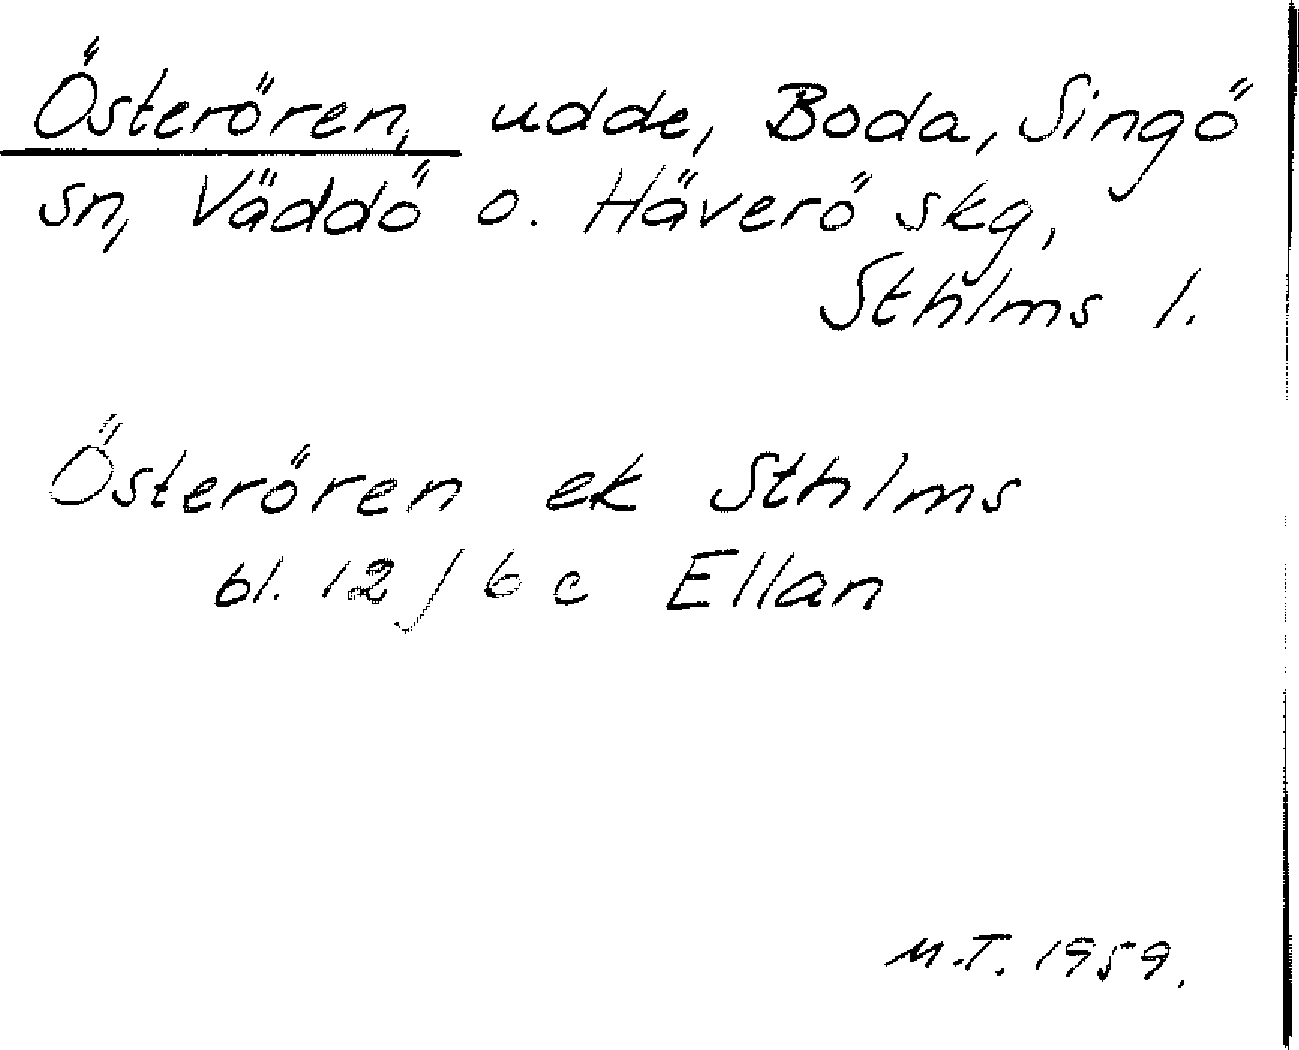 Österören, udde, Boda, Singö
sn, Väddö o. Häverö skg,
Sthlms l.
Österören ek Sthlms
bl. 12 / 6 c Ellan
M.T. 1959.